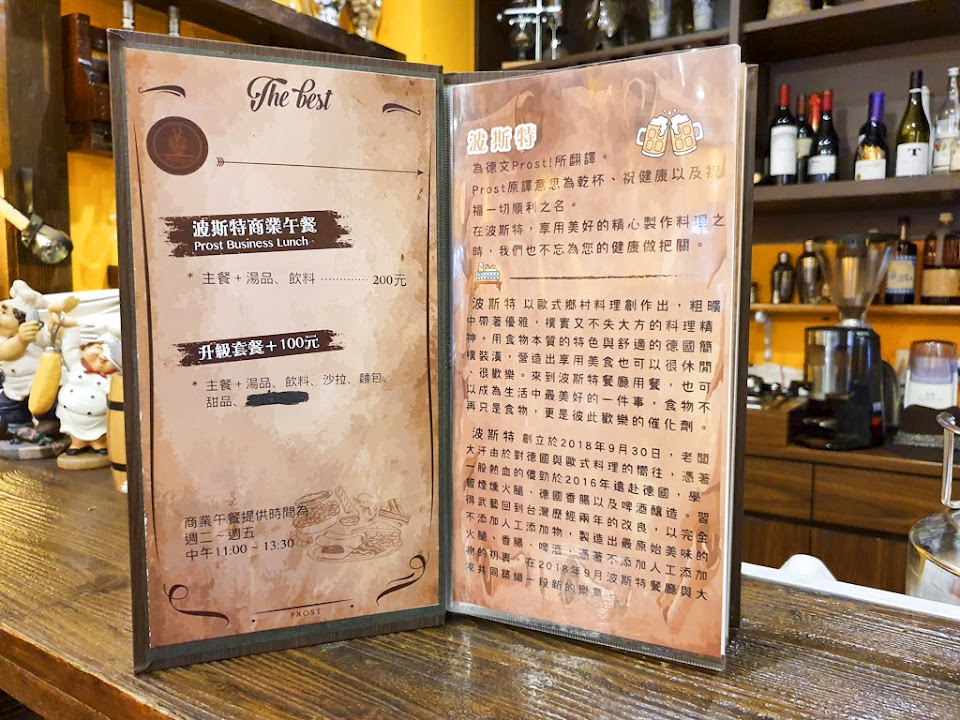 The best
波斯特商業午餐
Prost Business Lunch
* 主餐+湯品、飲料 ·············· 200元
升級套餐+100元
* 主餐+湯品、飲料、沙拉、麵包、
甜品、
商業午餐提供時間為
週二~週五
中午11:00~13:30
PROST
波斯特
為德文Prost!所翻譯。
Prost原譯意思為乾杯、祝健康以及祝
福一切順利之名。
在波斯特,享用美好的精心製作料理之
時,我們也不忘為您的健康做把關。
波斯特 以歐式鄉村料理創作出,粗曠
中帶著優雅,樸實又不失大方的料理精
神。用食物本質的特色與舒適的德國簡
樸裝潢,營造出享用美食也可以很休閒
、很歡樂。來到波斯特餐廳用餐,也可
以成為生活中最美好的一件事,食物不
再只是食物,更是彼此歡樂的催化劑。
波斯特 創立於2018年9月30日,老闆
大汗由於對德國與歐式料理的嚮往,憑著
一股熱血的傻勁於2016年遠赴德國,學
習煙燻火腿、德國香腸以及啤酒釀造。習
得武藝回到台灣歷經兩年的改良,以完全
不添加人工添加物,製造出最原始美味的
火腿、香腸、啤酒,憑著不添加人工添加
物的初衷,在2018年9月波斯特餐廳與大
家共同築編一段新的樂章。
T